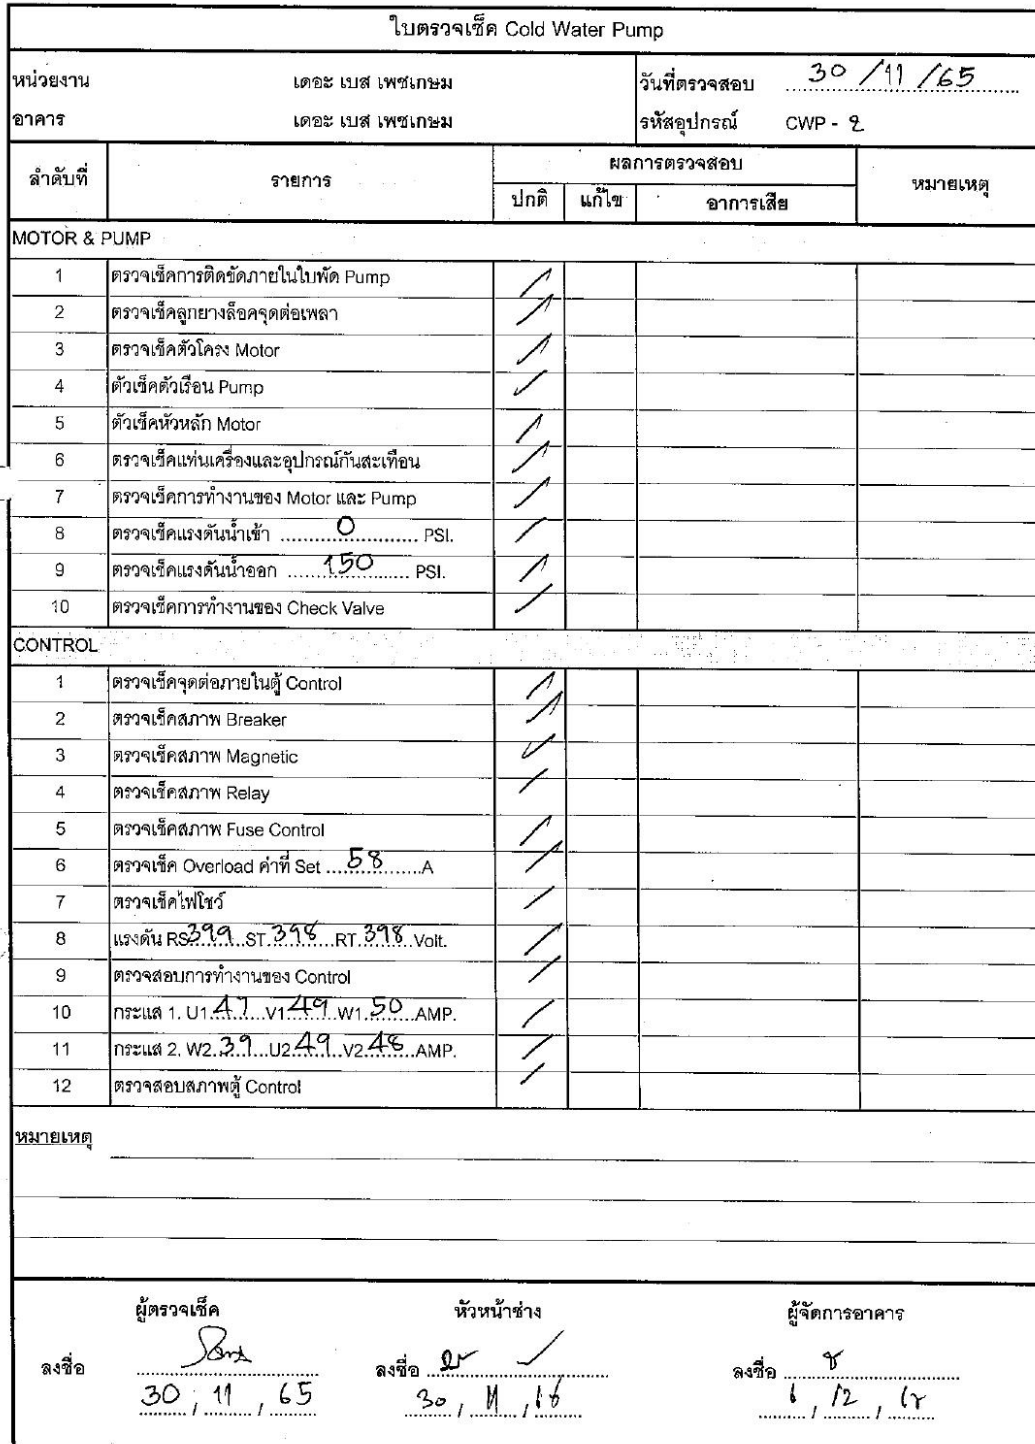 ใบตรวจเช็ค Cold Water Pump
หน่วยงาน เดอะ เบส เพชเกษม วันที่ตรวจสอบ 30 /11 /65
อาคาร เดอะ เบส เพชเกษม รหัสอุปกรณ์ CWP - 2
ลำดับที่ รายการ ผลการตรวจสอบ หมายเหตุ
ปกติ แก้ไข อาการเสีย
MOTOR & PUMP
1 ตรวจเช็คการติดขัดภายในใบพัด Pump
2 ตรวจเช็คลูกยางล็อคจุดต่อเพลา
3 ตรวจเช็คตัวโครง Motor
4 ตัวเช็คตัวเรือน Pump
5 ตัวเช็คหัวหลัก Motor
6 ตรวจเช็คแท่นเครื่องและอุปกรณ์กันสะเทือน
7 ตรวจเช็คการทำงานของ Motor และ Pump
8 ตรวจเช็คแรงดันน้ำเข้า ......0...... PSI.
9 ตรวจเช็คแรงดันน้ำออก ......150...... PSI.
10 ตรวจเช็คการทำงานของ Check Valve
CONTROL
1 ตรวจเช็คจุดต่อภายในตู้ Control
2 ตรวจเช็คสภาพ Breaker
3 ตรวจเช็คสภาพ Magnetic
4 ตรวจเช็คสภาพ Relay
5 ตรวจเช็คสภาพ Fuse Control
6 ตรวจเช็ค Overload ค่าที่ Set ....58......A
7 ตรวจเช็คไฟโชว์
8 แรงดัน RS.399..ST.398...RT.398.Volt.
9 ตรวจสอบการทำงานของ Control
10 กระแส 1. U1.47...V1.49..W1.50...AMP.
11 กระแส 2. W2.39...U2.49..V2.48...AMP.
12 ตรวจสอบสภาพตู้ Control
หมายเหตุ
ผู้ตรวจเช็ค หัวหน้าช่าง ผู้จัดการอาคาร
ลงชื่อ ลงชื่อ ลงชื่อ
30 / 11 / 65 30 / 11 / 12 /